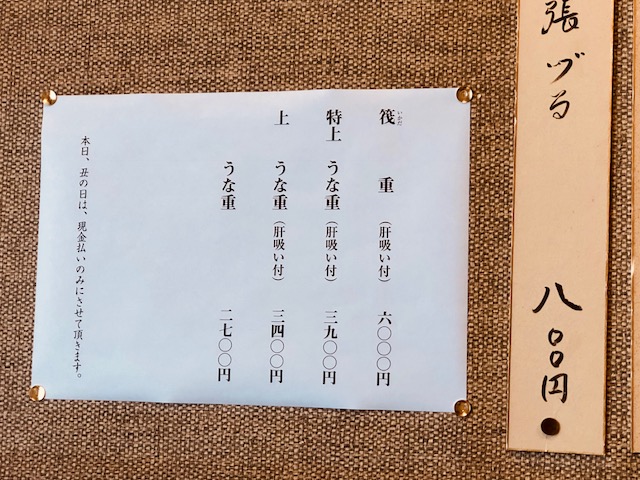 張ヅる 八〇〇円
筏 重（肝吸い付） 六〇〇〇円
いかだ
特上 うな重（肝吸い付） 三九〇〇円
上 うな重（肝吸い付） 三四〇〇円
うな重 二七〇〇円
本日、丑の日は、現金払いのみにさせて頂きます。